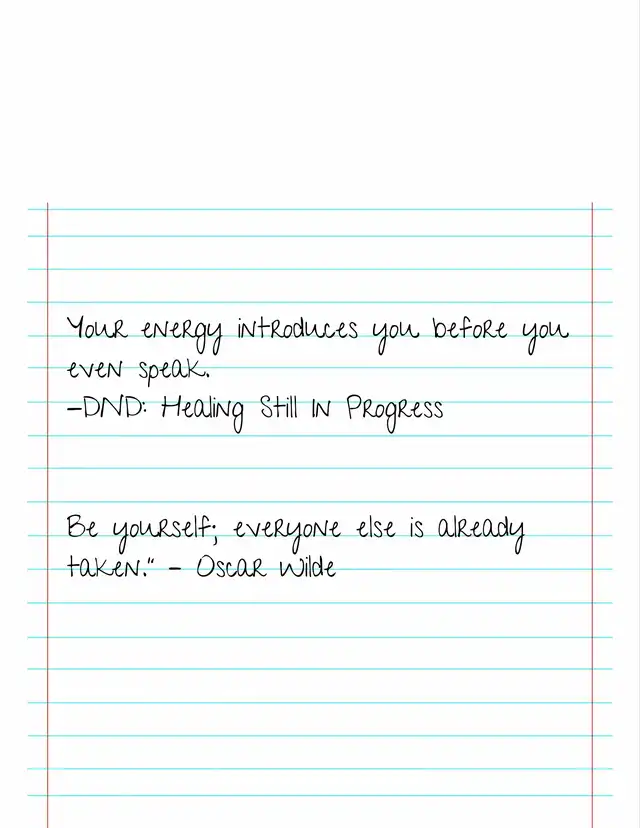 Your energy introduces you before you
even speak.
-DND: Healing Still In Progress
Be yourself; everyone else is already
taken." - Oscar Wilde